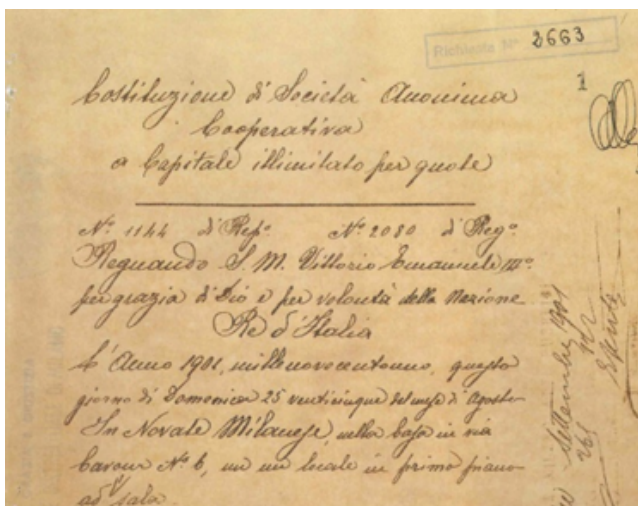 Richiesta N° 2663
1
Costituzione di Società Anonima
Cooperativa
a Capitale illimitato per quote
N° 1144 di Rep° N° 2080 di Reg°
Regnando S. M. Vittorio Emanuele III°
per grazia di Dio e per volontà della Nazione
Re d'Italia
L'Anno 1901, millenovecentouno, questo
giorno di Domenica 25 venticinque del mese d'Agosto
In Novate Milanese, nella Casa in via
Cavour N° 6, in un locale in primo piano
ad sala
Settembre 1901